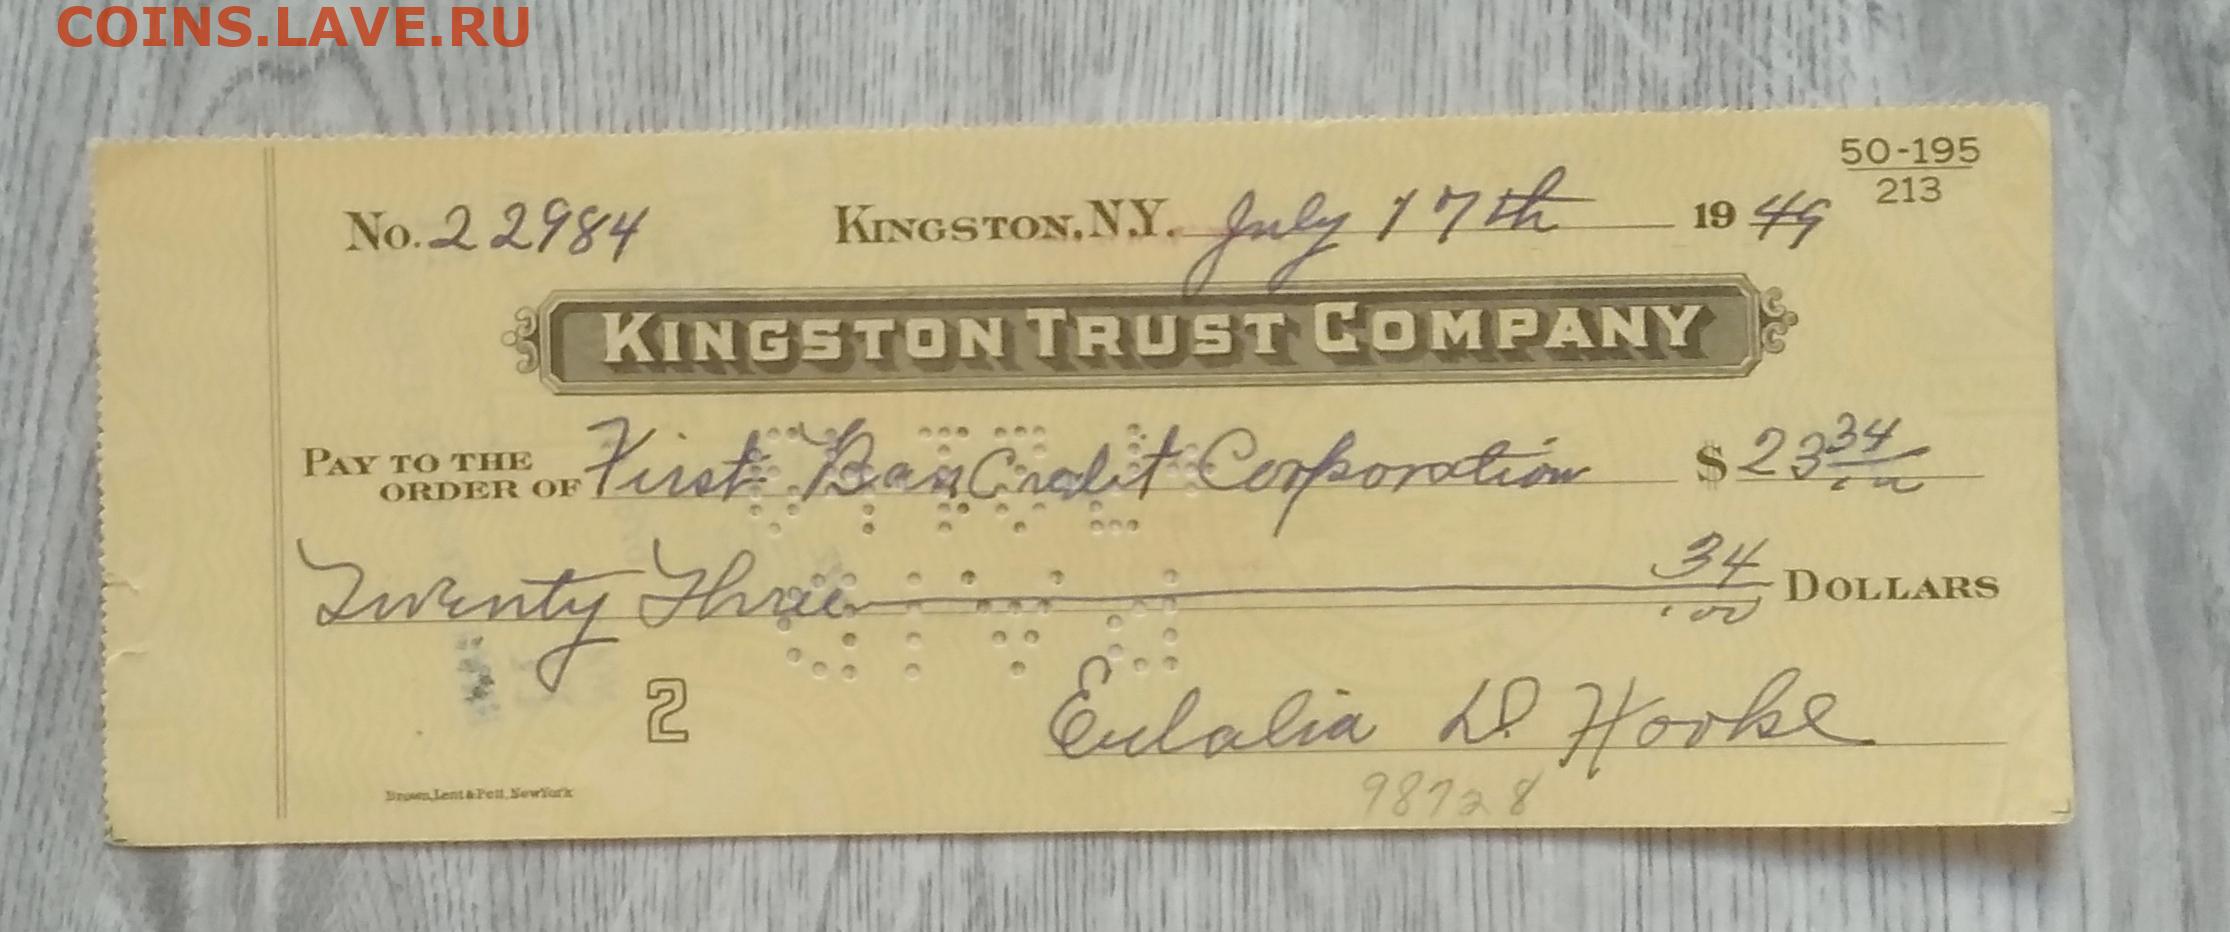 COINS.LAVE.RU
50-195
213
No. 22984 KINGSTON, N.Y. July 17th 1949
KINGSTON TRUST COMPANY
PAY TO THE ORDER OF First BanCredit Corporation $ 23 34/100
Twenty Three 34/100 DOLLARS
2
Eulalia D. Hooke
Brown, Lent & Pett, New York
98728